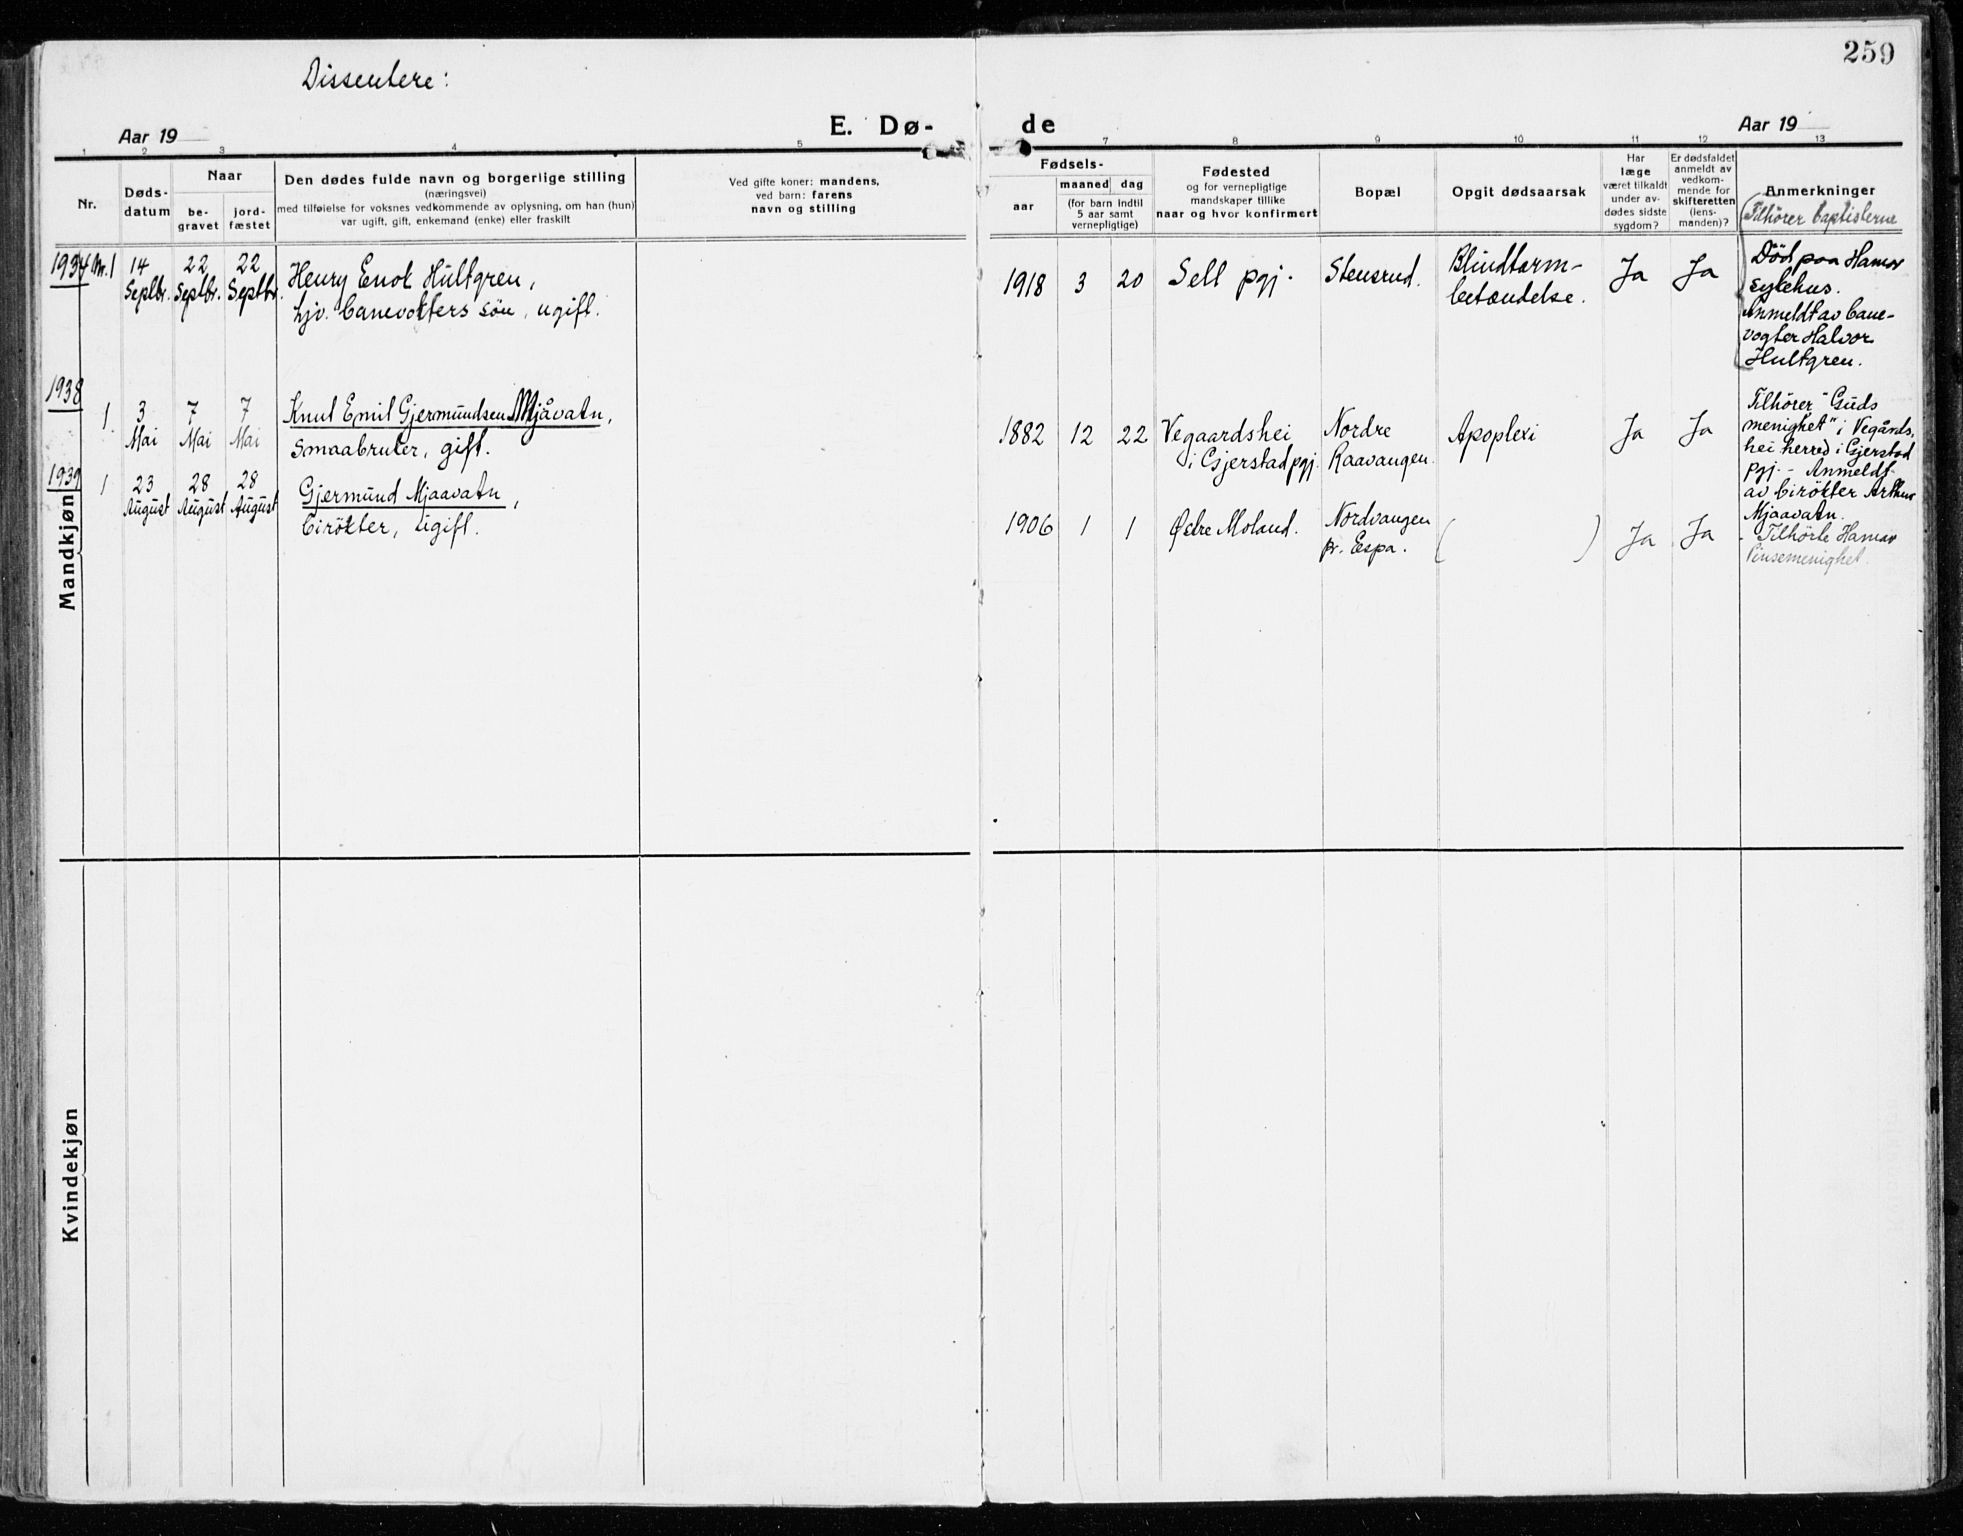 259
Dissentere:
Aar 19
E. Dø-
de
Aar 19
1 2 3 4 5 7 8 9 10 11 12 13
Nr.
Døds-
datum
Naar
be-
gravet
jord-
fæstet
Den dødes fulde navn og borgerlige stilling
(næringsvei)
med tilføielse for voksnes vedkommende av oplysning, om han (hun)
var ugift, gift, enkemand (enke) eller fraskilt
Ved gifte koner: mandens,
ved barn: farens
navn og stilling
Fødsels-
aar
maaned
dag
(for barn indtil
5 aar samt
vernepligtige)
Fødested
og for vernepligtige
mandskaper tillike
naar og hvor konfirmert
Bopæl
Opgit dødsaarsak
Har
læge
været tilkaldt
under av-
dødes sidste
sygdom?
Er dødsfaldet
anmeldt av
vedkom-
mende for
skifteretten
(lens-
manden)?
Anmerkninger
Mandkjøn
1934 Nr. 1
14
Septbr.
22
Septbr.
22
Septbr.
Henry Enok Hultgren,
hjv. banevokters søn, ugift.
1918 3 20
Sell pgj.
Stensrud.
Blindtarm-
betændelse.
Ja
Ja
Tilhører baptisterne
Død paa Hamar
sykehus.
Anmeldt av bane-
vogter Halvor
Hultgren.
1938
1.
3
Mai
7
Mai
7
Mai
Knut Emil Gjermundsen Mjåvatn,
Smaabruker, gift.
1882 12 22
Vegaardshei
i Gjerstad pgj.
Nordre
Kaavangen.
Apoplexi
Ja
Ja
Tilhører "Guds
menighet" i Vegårds-
hei herred i Gjerstad
pgj. - Anmeldt
av birøkter Arthur
Mjaavatn.
1939
1
23
August
28
August
28
August
Gjermund Mjaavatn,
birøkter, ugift.
1906 1 1
Østre Moland.
Nordvangen
pr. Espa.
( )
Ja
Ja
- Tilhørte Hamar
Pinsemenighet.
Kvindekjøn